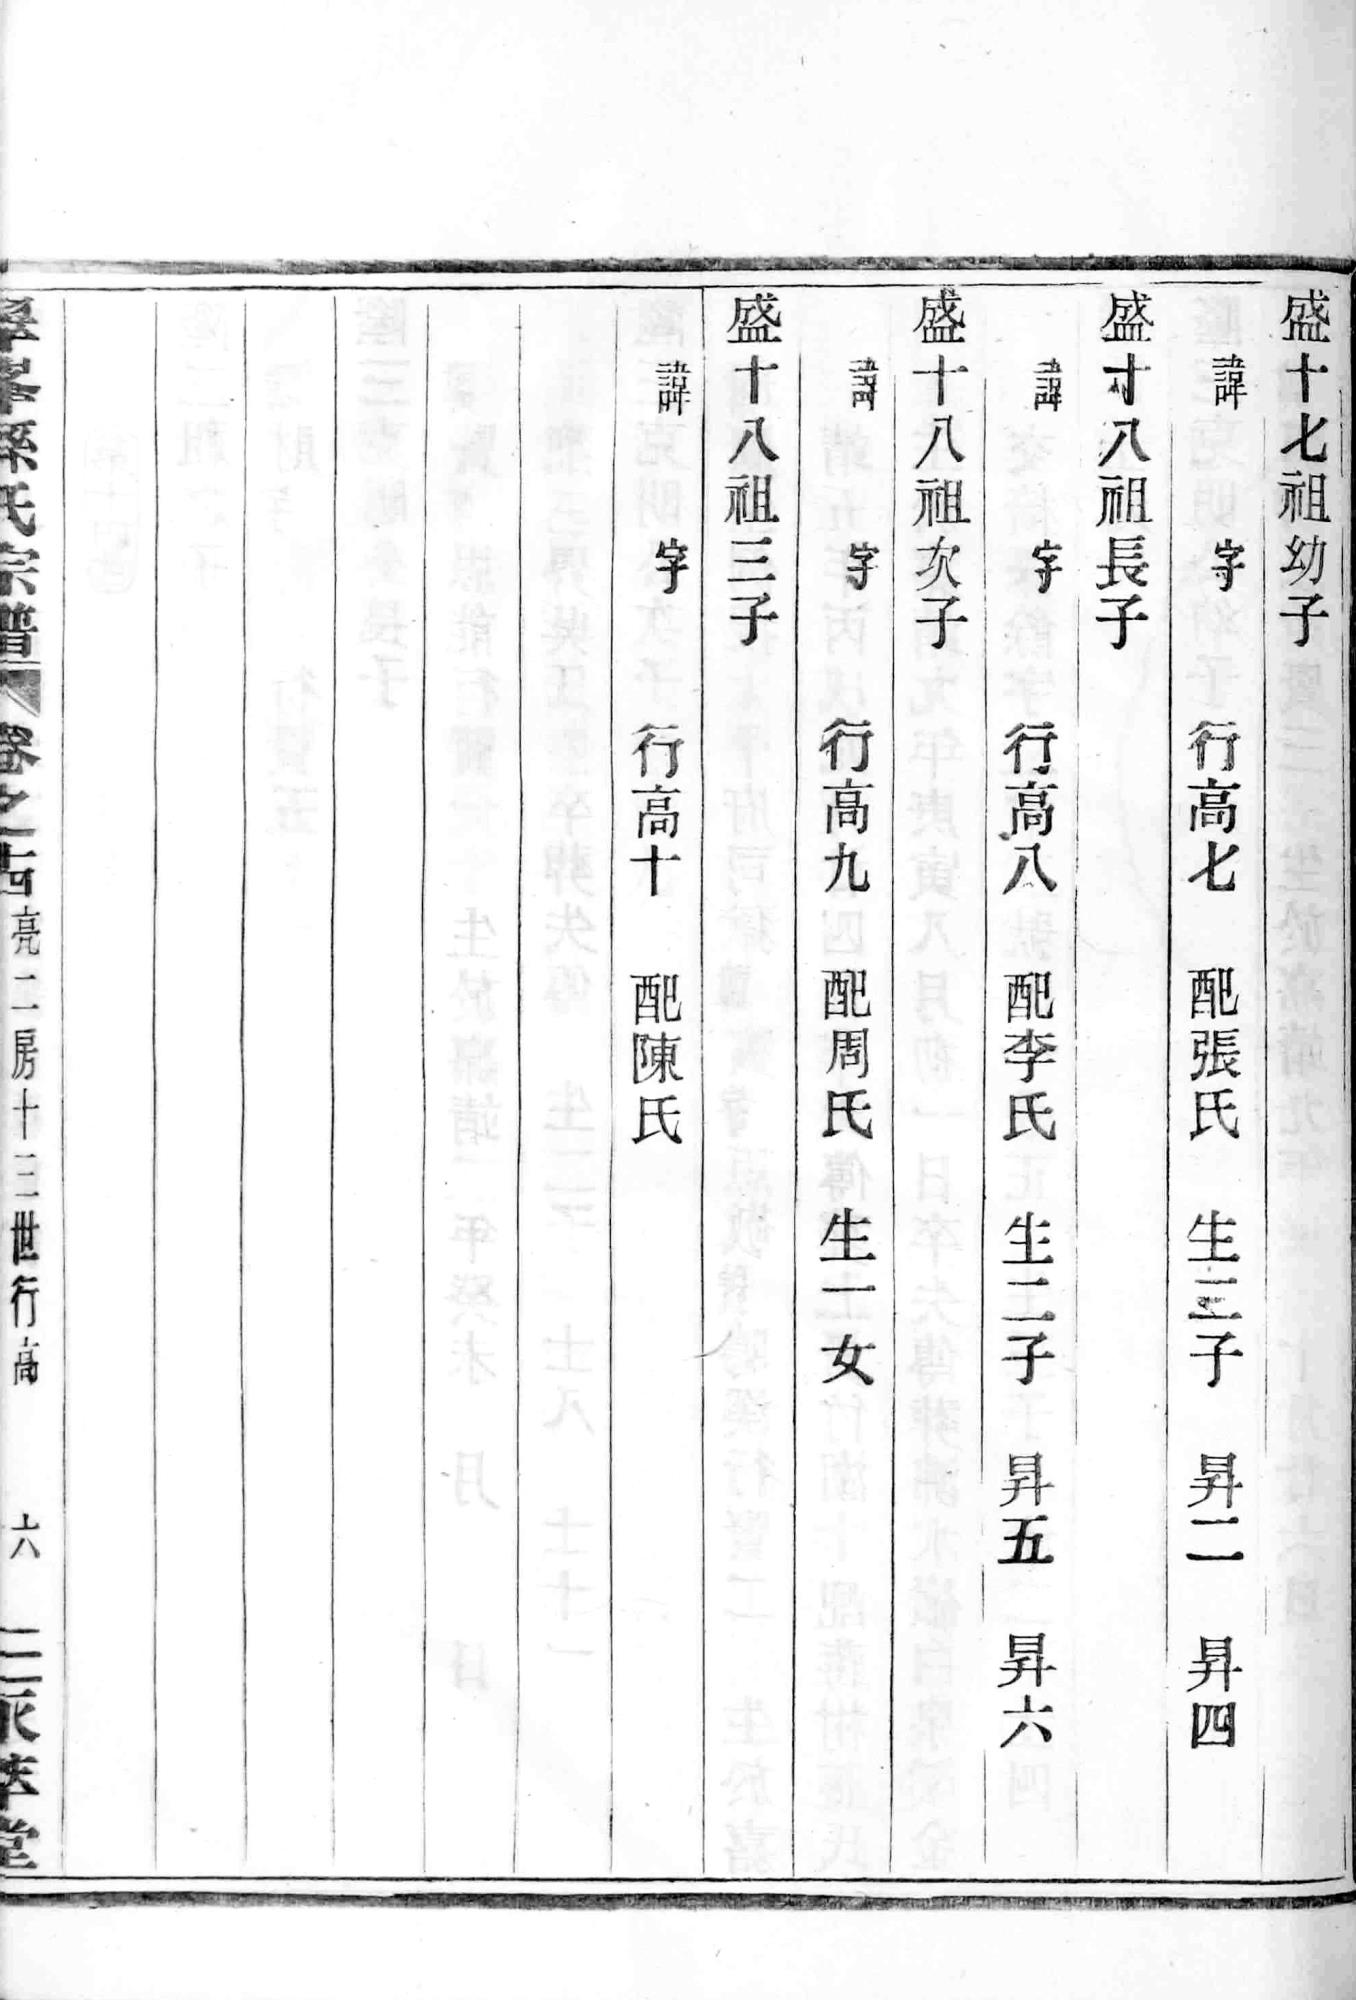 盛十七祖幼子
諱　字　行高七　配張氏　生三子　昇二　昇四
盛十八祖長子
諱　字　行高八　配李氏　生二子　昇五　昇六
盛十八祖次子
諱　字　行高九　配周氏　生一女
盛十八祖三子
諱　字　行高十　配陳氏
孫氏宗譜　卷之　亮二房十三世行高　六　萃堂